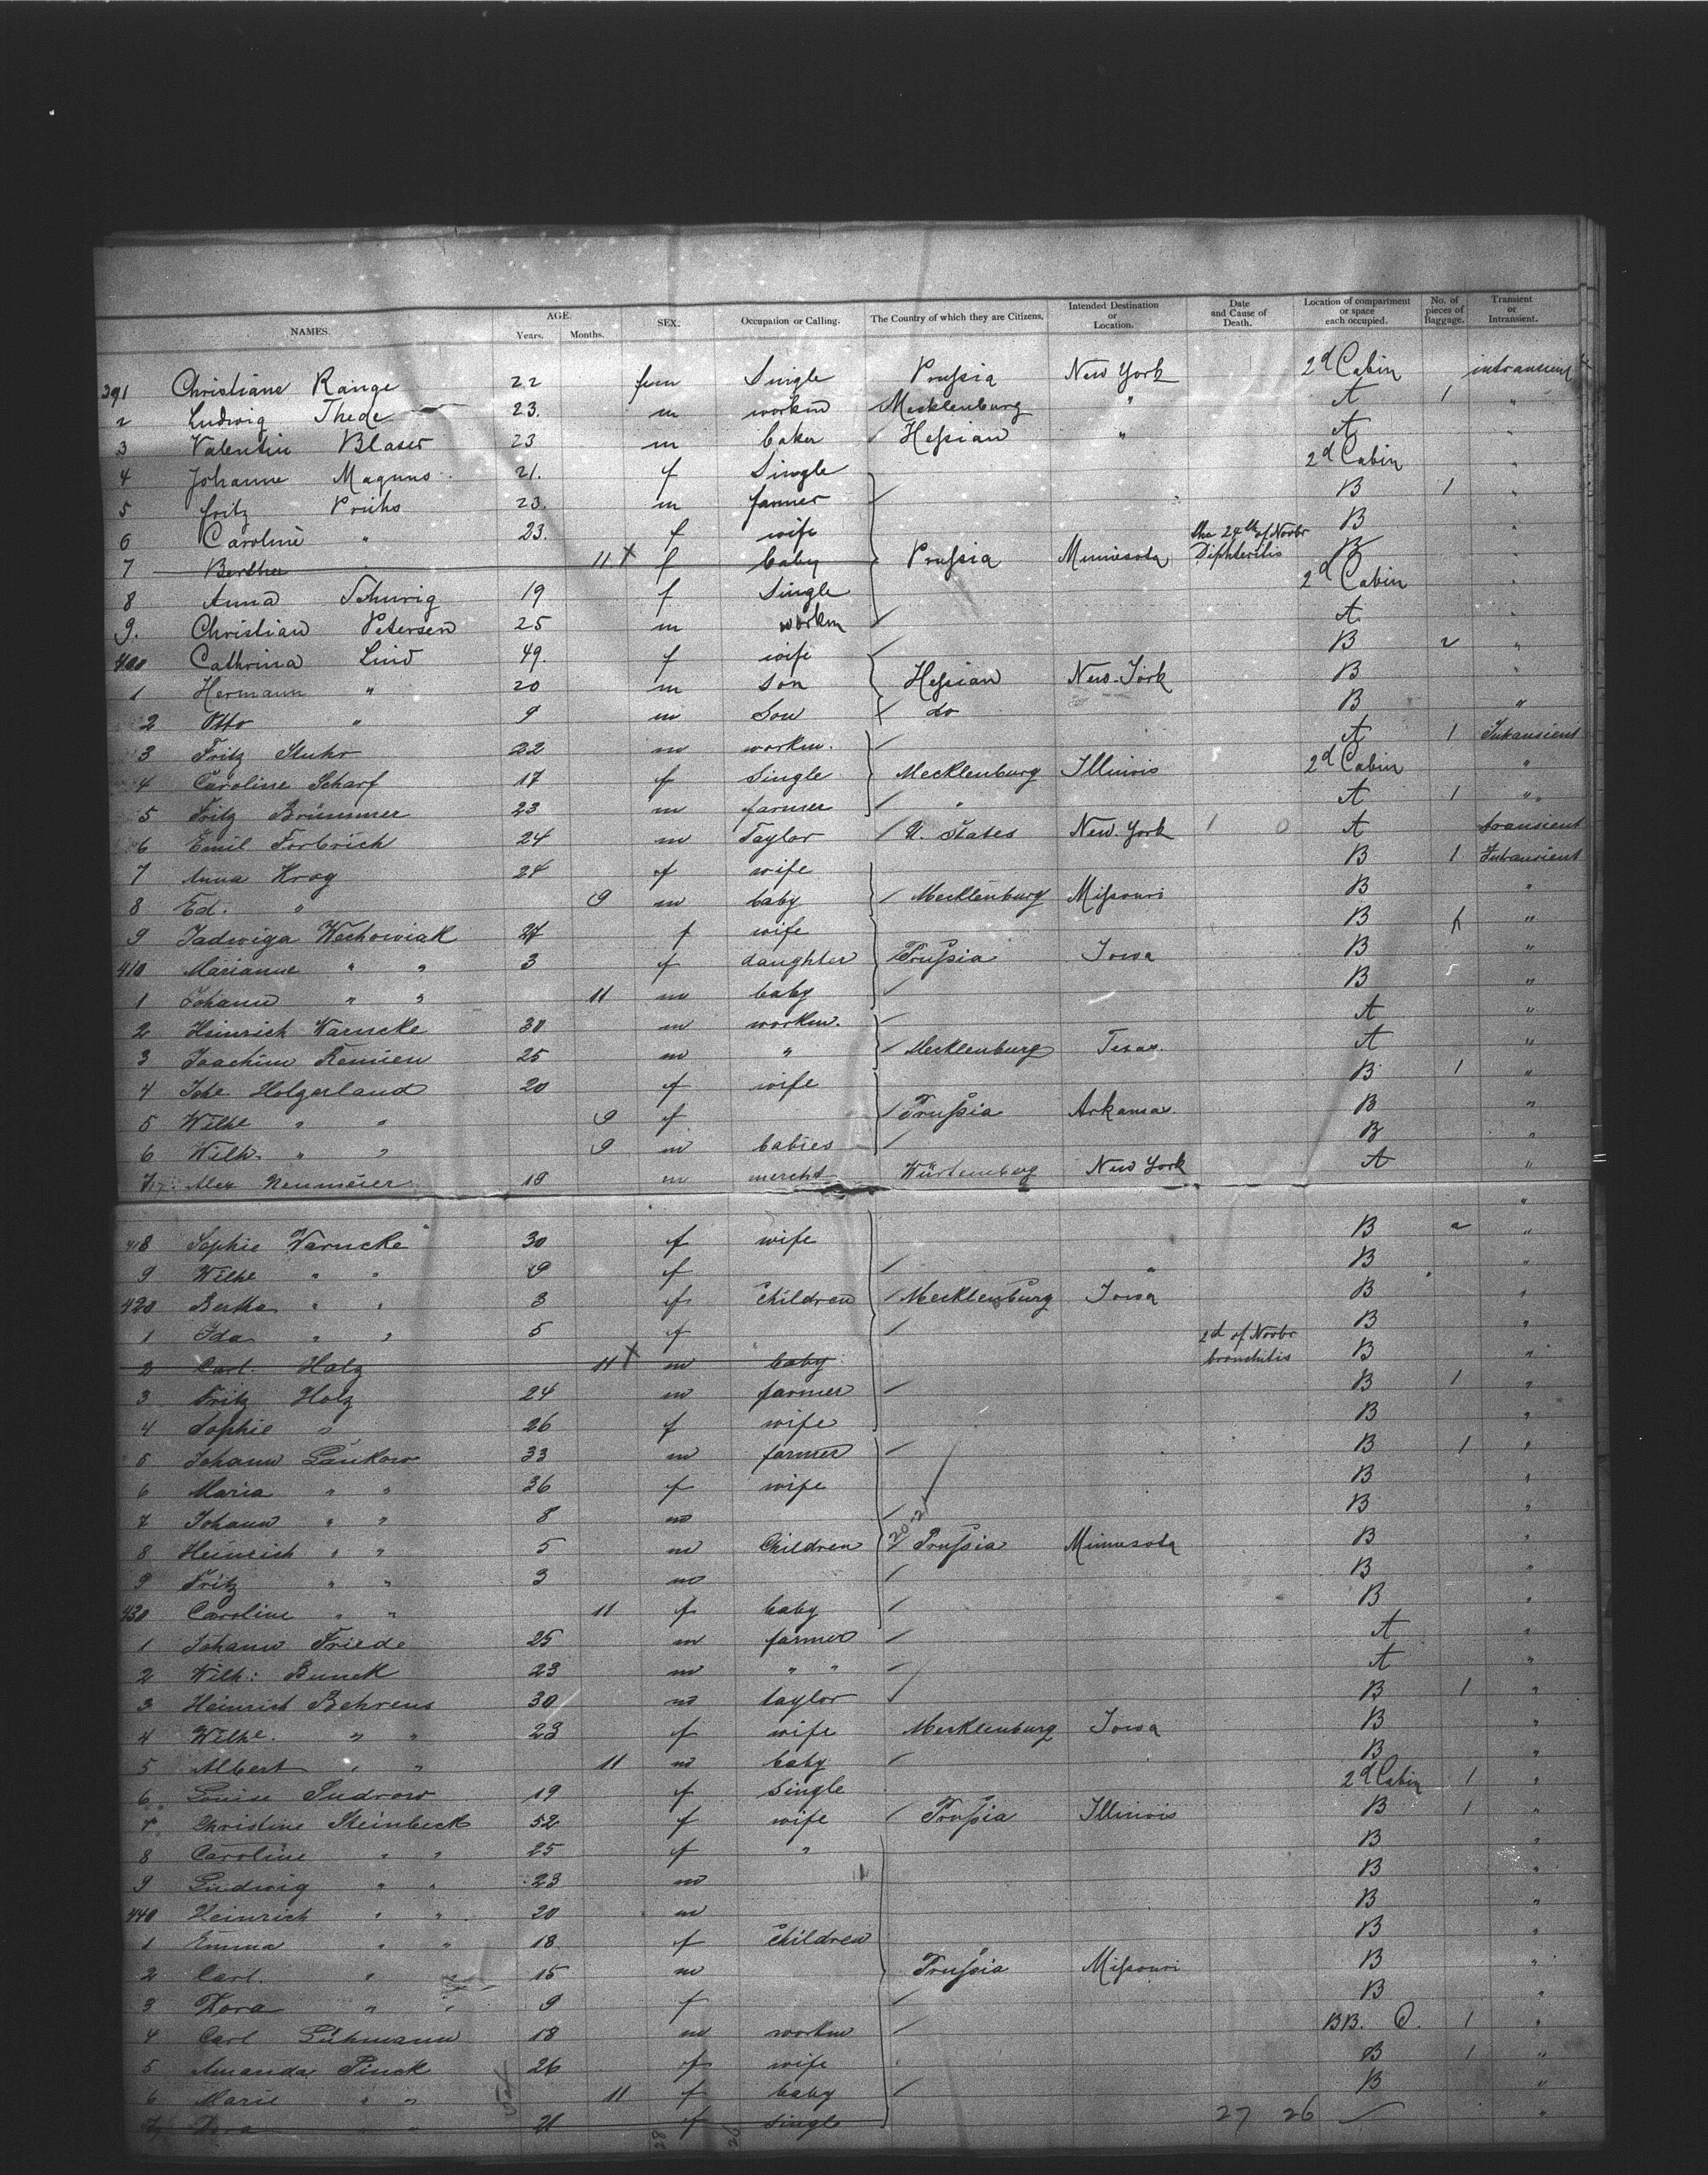 NAMES. AGE. Years. Months. SEX. Occupation or Calling. The Country of which they are Citizens. Intended Destination or Location. Date and Cause of Death. Location of compartment or space each occupied. No. of pieces of Baggage. Transient or Intransient.
391 Christiane Range 22 fem Single Prussia New York 2d Cabin intransient
2 Ludwig Thede 23. m workm Mecklenburg " A 1 "
3 Valentin Blaser 23 m baker Hessian " A "
4 Johanne Magnus 21. f Single 2d Cabin "
5 Fritz 23. m farmer B 1 "
6 Caroline " 23. f wife B "
7 Bertha 11 X f baby Prussia Minnesota the 24th of Novbr Diphteritis B "
8 Anna 19 f Single 2d Cabin "
9. Christian Petersen 25 m workm A "
400 Cathrina Lind 49. f wife B 2 "
1 Hermann " 20 m son Hessian New-York B "
2 Otto " 9 m Son do B "
3 Fritz Stuhr 22 m workm. A 1 Intransient
4 Caroline Scharf 17 f Single Mecklenburg Illinois 2d Cabin "
5 Fritz Brümmer 23 m farmer " A 1 "
6 Emil Forbrich 24 m Taylor U. States New-York A transient
7 Anna Krog 24 f wife B 1 Intransient
8 Ed. " 9 m baby Mecklenburg Missouri B "
9 Jadwiga Wechowiak 24 f wife B 1 "
410 Marianne " " 3 f daughter Prussia Iowa B "
1 Johann " " 11 m baby B "
2 Heinrich Warncke 30 m workm. A "
3 Joachim Remien 25 m " Mecklenburg Texas. A "
4 Johe Holgerland 20 f wife B 1 "
5 Wilhe " " 9 f Prussia Arkansas. B "
6 Wilh. " " 9 m babies B "
7 Alex Neumeier 19 m mercht Würtemberg New York A "
418 Sophie Warncke 30 f wife B 2 "
9 Wilhe " " 9 f " B "
420 Bertha " " 3 f Children Mecklenburg Iowa B "
1 Ida " " 5 f B "
2 Carl. Holz 11 X m baby 2d of Novbr bronchitis B "
3 Fritz Holz 24 m farmer B 1 "
4 Sophie " 26 f wife B "
5 Johann Länkow 33 m farmer B 1 "
6 Maria " " 36 f wife B "
7 Johann " " 8 m B "
8 Heinrich " " 5 m Children Prussia Minnesota B "
9 Fritz " " 3 m B "
430 Caroline " " 11 f baby B "
1 Johann Friede 25 m farmer A "
2 Wilh: Bunck 23 m " " A "
3 Heinrich Behrens 30 m taylor B 1 "
4 Wilhe. " " 23 f wife Mecklenburg Iowa B "
5 Albert " " 11 m baby B "
6 Louise 19 f Single 2d Cabin 1 "
7 Christine Steinbeck 52 f wife Prussia Illinois B 1 "
8 Caroline " " 25 f " B "
9 Ludwig " " 23 m B "
440 Heinrich " " 20 m B "
1 Emma " " 18 f Children B "
2 Carl. " 15 m Prussia Missouri B "
3 Dora " " 9 f B "
4 Carl Lühmann 18 m workm BB. 1 "
5 Amanda Pinck 26 f wife B 1 "
6 Marie " " 11 f baby B "
7 Dora " " 21 f single 27 26 "